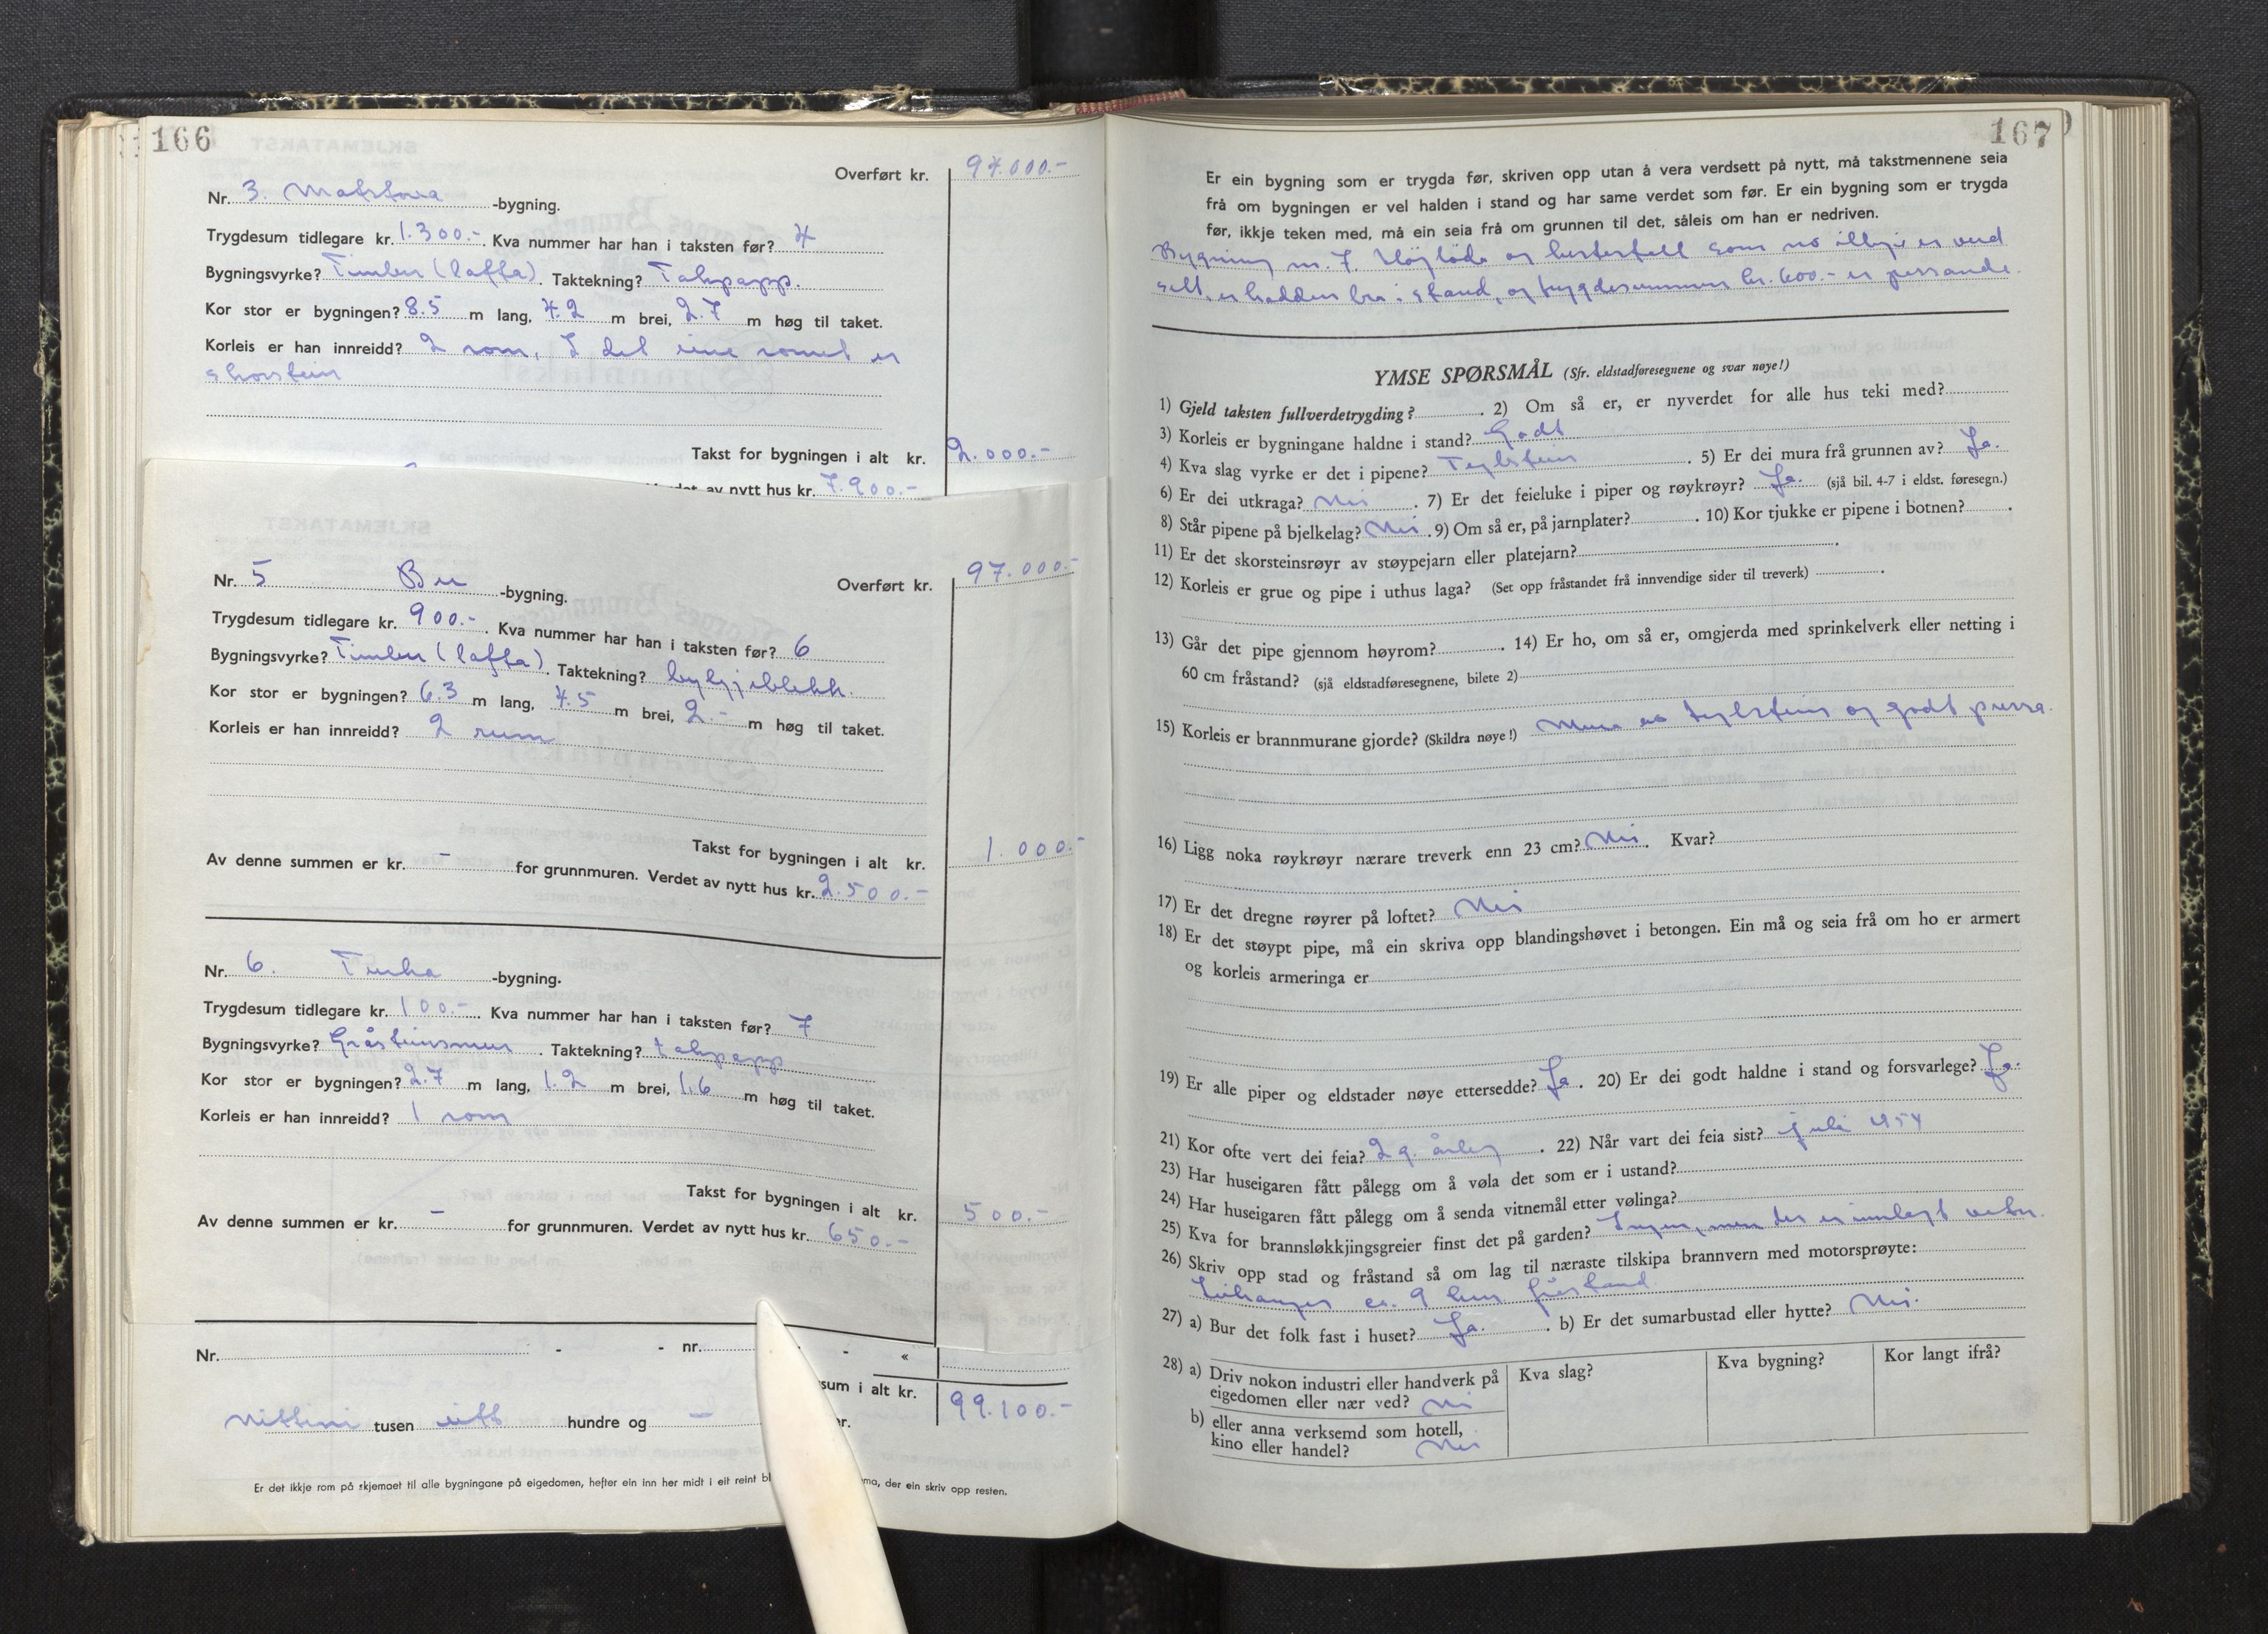 166
Overført kr. 94.000.-
Nr. 3. Matstova -bygning.
Trygdesum tidlegare kr. 1.300.- Kva nummer har han i taksten før? 4
Bygningsvyrke? Timber (lafta). Taktekning? Takpapp.
Kor stor er bygningen? 8.5 m lang, 4.2 m brei, 2.7 m høg til taket.
Korleis er han innreidd? 2 rom, I det eine romet er
skorstein
Takst for bygningen i alt kr. 2.000.-
av nytt hus kr. 7.900.-
Nr. 5 Bu -bygning. Overført kr. 97.000.-
Trygdesum tidlegare kr. 900.- Kva nummer har han i taksten før? 6
Bygningsvyrke? Timber (lafta). Taktekning? bylgjeblekk.
Kor stor er bygningen? 6.3 m lang, 4.5 m brei, 2.- m høg til taket.
Korleis er han innreidd? 2 rum
Takst for bygningen i alt kr. 1.000.-
Av denne summen er kr. - for grunnmuren. Verdet av nytt hus kr. 2.500.-
Nr. 6. Turka -bygning.
Trygdesum tidlegare kr. 100.- Kva nummer har han i taksten før? 7
Bygningsvyrke? Gråsteinsmur. Taktekning? takpapp
Kor stor er bygningen? 2.7 m lang, 1.2 m brei, 1.6 m høg til taket.
Korleis er han innreidd? 1 rom
Takst for bygningen i alt kr. 500.-
Av denne summen er kr. - for grunnmuren. Verdet av nytt hus kr. 650.-
Nr. - - nr. - «
sum i alt kr. 99.100.-
Nittini tusen eitt hundre og - kr.
Er det ikkje rom på skjemaet til alle bygningane på eigedomen, hefter ein inn her midt i eit reint bl ma, der ein skriv opp resten.
167
Er ein bygning som er trygda før, skriven opp utan å vera verdsett på nytt, må takstmennene seia
frå om bygningen er vel halden i stand og har same verdet som før. Er ein bygning som er trygda
før, ikkje teken med, må ein seia frå om grunnen til det, såleis om han er nedriven.
Bygning nr. 7. Höyløda og hestestall som no ikkje er verd
sett, er halden bra i stand, og trygdesummen kr. 600.- er passande.
YMSE SPØRSMÅL (Sfr. eldstadføresegnene og svar nøye!)
1) Gjeld taksten fullverdetrygding? 2) Om så er, er nyverdet for alle hus teki med?
3) Korleis er bygningane haldne i stand? Godt
4) Kva slag vyrke er det i pipene? Teglstein. 5) Er dei mura frå grunnen av? Ja.
6) Er dei utkraga? Nei. 7) Er det feieluke i piper og røykrøyr? Ja. (sjå bil. 4-7 i eldst. føresegn.)
8) Står pipene på bjelkelag? Nei. 9) Om så er, på jarnplater? 10) Kor tjukke er pipene i botnen?
11) Er det skorsteinsrøyr av støypejarn eller platejarn?
12) Korleis er grue og pipe i uthus laga? (Set opp fråstandet frå innvendige sider til treverk)
13) Går det pipe gjennom høyrom? 14) Er ho, om så er, omgjerda med sprinkelverk eller netting i
60 cm fråstand? (sjå eldstadføresegnene, bilete 2)
15) Korleis er brannmurane gjorde? (Skildra nøye!) Mura av teglstein og godt pussa.
16) Ligg noka røykrøyr nærare treverk enn 23 cm? Nei. Kvar?
17) Er det dregne røyrer på loftet? Nei
18) Er det støypt pipe, må ein skriva opp blandingshøvet i betongen. Ein må og seia frå om ho er armert
og korleis armeringa er
19) Er alle piper og eldstader nøye ettersedde? Ja. 20) Er dei godt haldne i stand og forsvarlege? Ja.
21) Kor ofte vert dei feia? 2 g. årleg. 22) Når vart dei feia sist? juli 1954
23) Har huseigaren fått pålegg om å vøla det som er i ustand?
24) Har huseigaren fått pålegg om å senda vitnemål etter vølinga?
25) Kva for brannsløkkjingsgreier finst det på garden? Ingen, men der er innlagt vatn.
26) Skriv opp stad og fråstand så om lag til næraste tilskipa brannvern med motorsprøyte:
Leikanger ca. 9 km fråstand
27) a) Bur det folk fast i huset? Ja. b) Er det sumarbustad eller hytte? Nei.
28) a) Driv nokon industri eller handverk på eigedomen eller nær ved? Nei Kva slag? Kva bygning? Kor langt ifrå?
b) eller anna verksemd som hotell,
kino eller handel? Nei